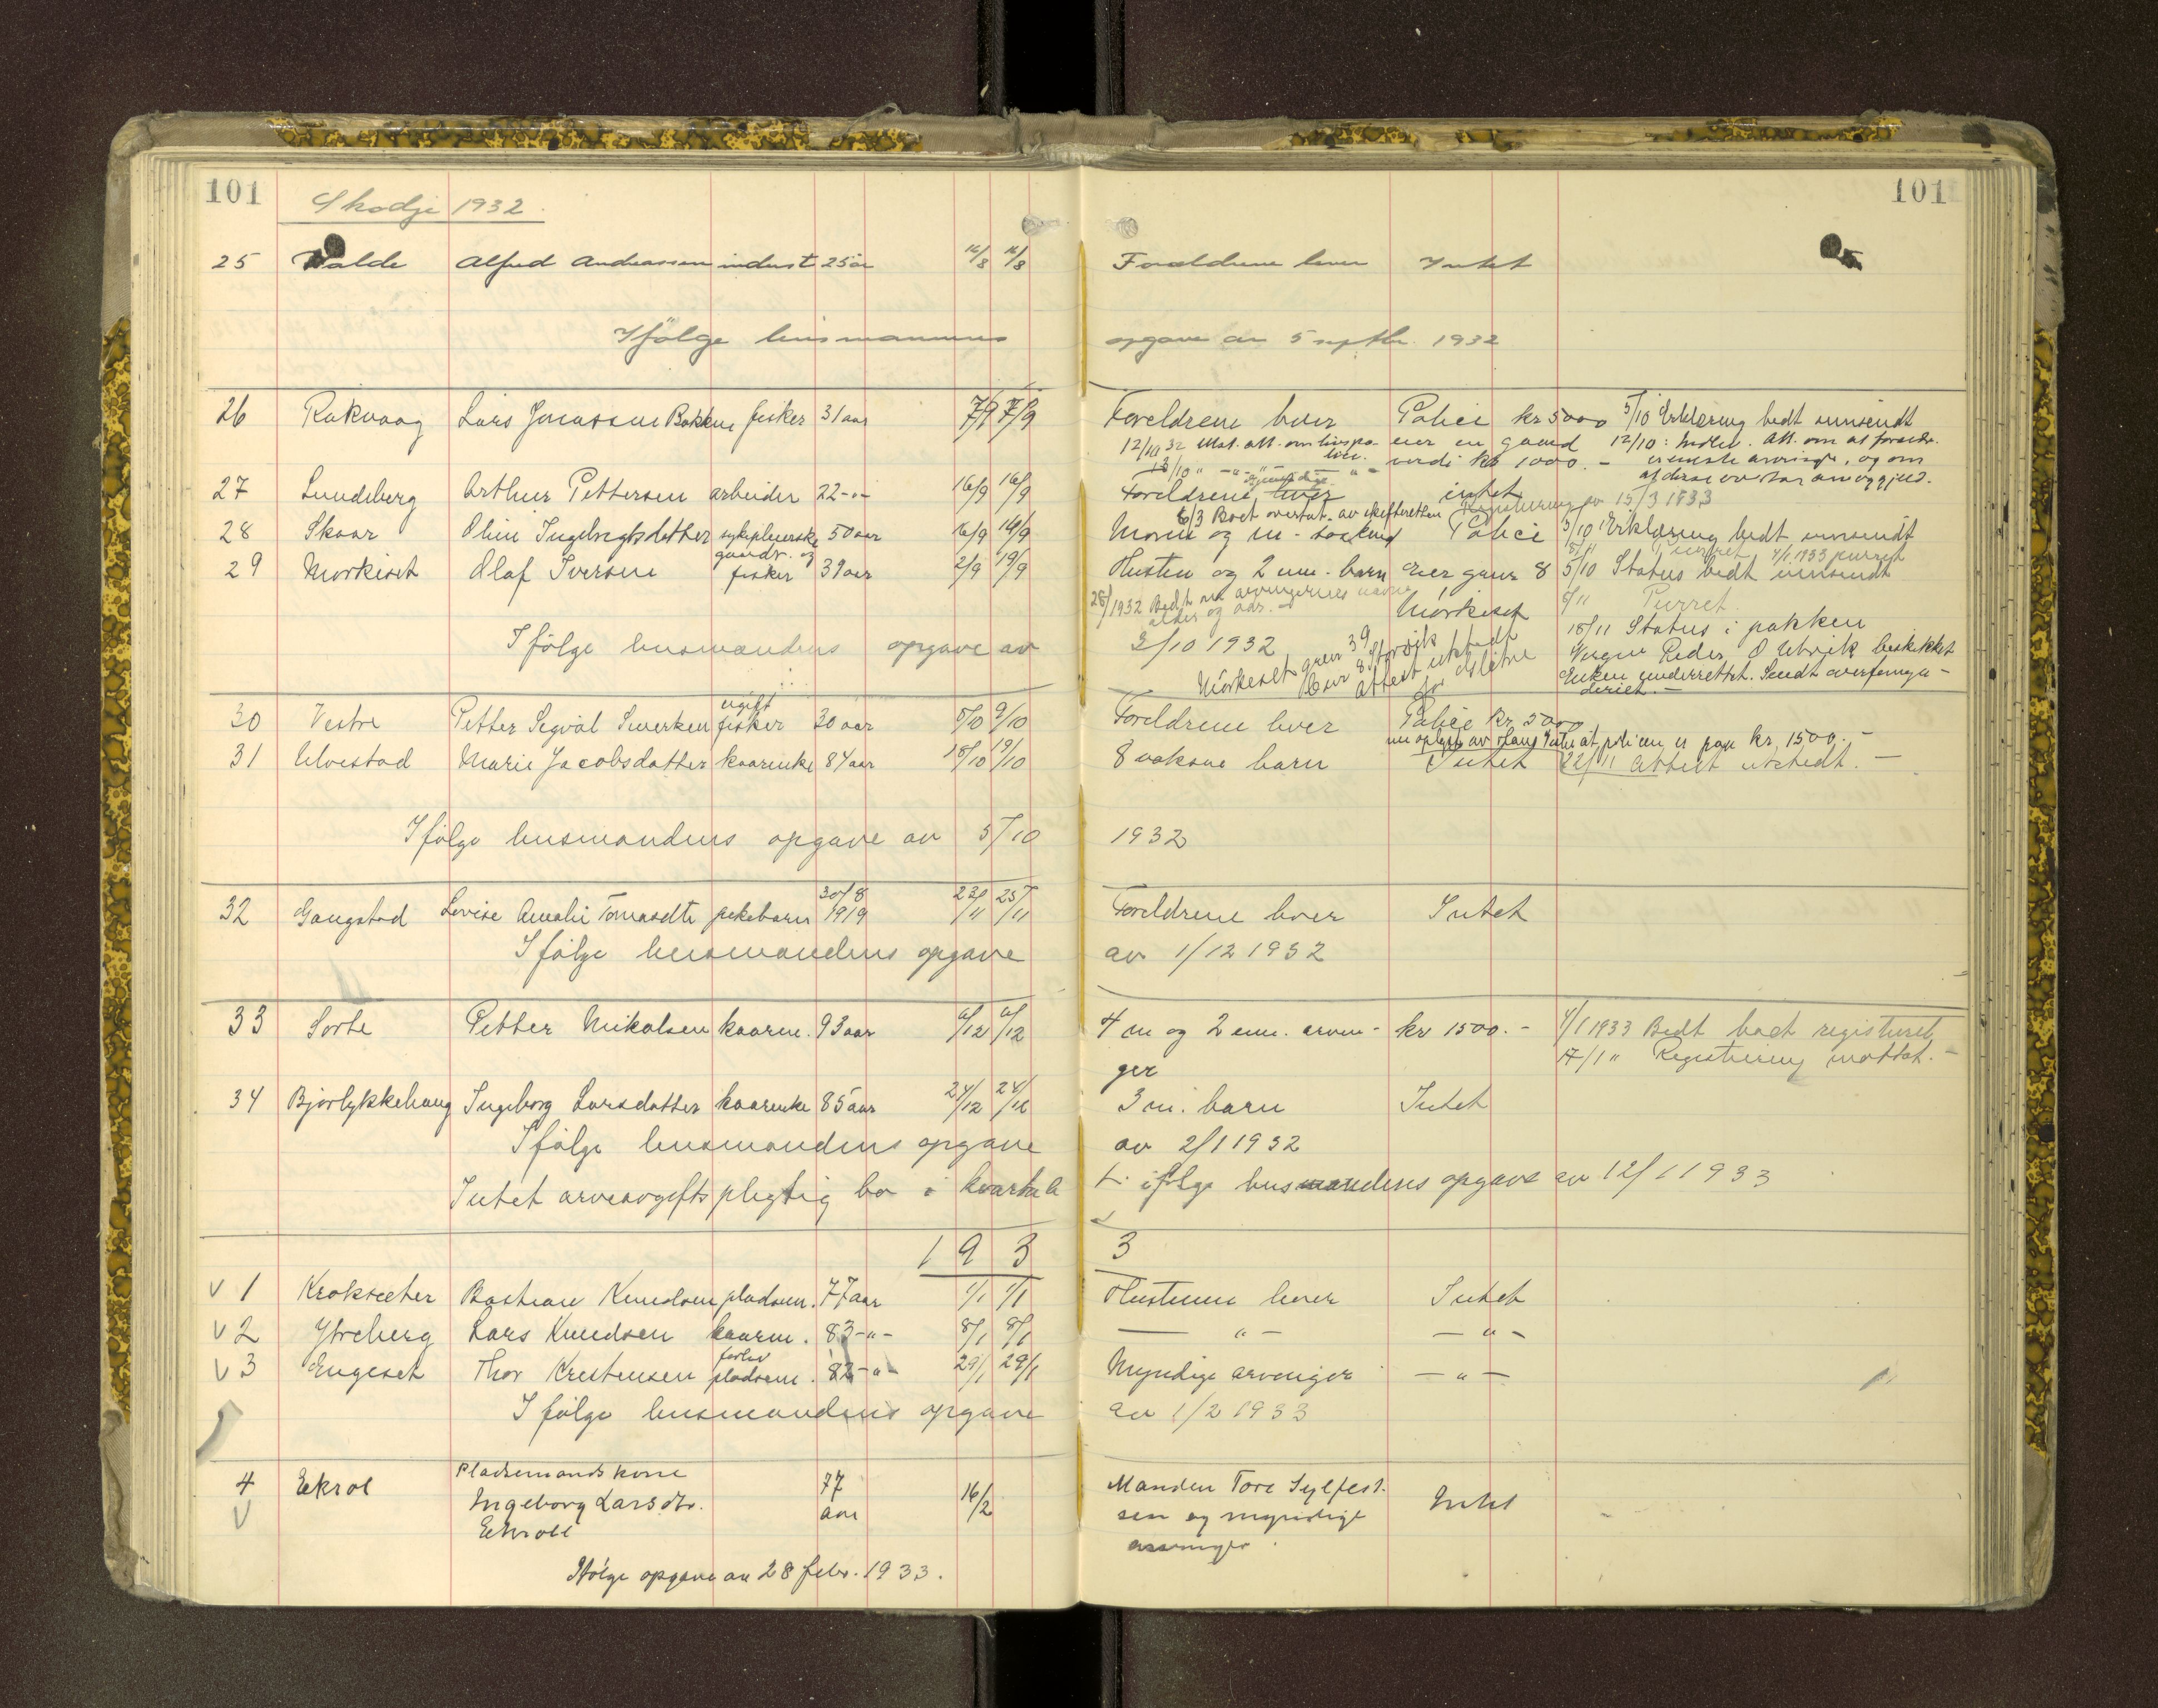 101 101
Skodje 1932
25 Valde Alfred Andreassen indust 25 år 16/8 16/8 Foreldrene lever Intet
Ifölge lensmannens opgave av 5 septbr. 1932
26 Rakvaag Lars Jonassen Bakken fisker 31 aar 7/9 7/9 Foreldrene lever Police kr 5000 5/10 Erklæring bedt innsendt
12/10 32 Mot. att. om livspo- eier en gaard 12/10: Att. om at foreldr.
lice. verdi kr 1000.- eneste arvinger, og om
27 Sundsberg Arthur Pettersen arbeider 22 -"- 16/9 16/9 Foreldrene lever intet
6/3 Boet overtat av skifteretten Registrering 15/3 1933
28 Skaar Oline Ingebrigtsdatter sykepleierske 50 aar 16/9 16/9 Moren og m - søskend Police 5/10 Erklæring bedt innsendt
8/11 Purret 4/1 1933 purret
29 Mørkeset Olaf Iversen gaardbr. og fisker 39 aar 2/9 19/9 Hustru og 2 um. barn Eier gaur 8 Mörkeset 5/10 Status bedt innsendt
28/ 1932 Bedt om arvingernes navn
alder og adr. 8/11 Purret.
Ifölge lensmandens opgave av 3/10 1932 18/11 Status i pakken
Mörkeset gnr 39 bnr 8 Storvik attest utstedt
Verge Peder O Utvik beskikket
Enken underrettet. Sendt overformyn-
deriet.-
30 Vestre Petter Sigval Sneerken ugift fisker 30 aar 5/10 9/10 Foreldrene lever Police kr 5000
at policen er paa kr. 1500.-
31 Ulvestad Marie Jacobsdatter kaarenke 84 aar 18/10 19/10 8 voksne barn Intet 22/11 Attest utstedt.-
Ifölge lensmandens opgave av 5/10 1932
32 Gangstad Lovise Amalie Tomasdtr pikebarn 30/8 1919 23/11 25/11 Foreldrene lever Intet
Ifölge lensmandens opgave av 1/12 1932
33 Sorte Petter Nikolsen kaarm. 93 aar 6/12 6/12 4 m og 2 um. arvin- kr 1500.- 4/1 1933 Bedt boet registreret
ger 17/1 " Registrering mottat.-
34 Bjørlykkehaug Ingeborg Larsdatter kaarenke 85 aar 24/12 24/12 3 m. barn Intet
Ifölge lensmandens opgave av 2/1 1932
Intet arveavgiftspligtig bo i kvartale t. ifölge lensmandens opgave av 12/1 1933
1933
V 1 Kroksæter Bastian Knudsen pladsm. 77 aar 1/1 1/1 Hustruen lever Intet
V 2 Ytreberg Lars Knudsen kaarm. 83 -"- 8/1 8/1 — " — — " —
V 3 Engeset Thor Kristensen forhv pladsm. 82 -"- 29/1 29/1 Myndige arvinger — " —
Ifölge lensmandens opgave av 1/2 1933
4 Ekrol Pladsemandskone 77 16/2 Manden Tore Sylfest-
V Ingeborg Larsdtr. aar sen og myndige Intet
Ekroll arvinger.
Ifölge opgave av 28 febr. 1933.